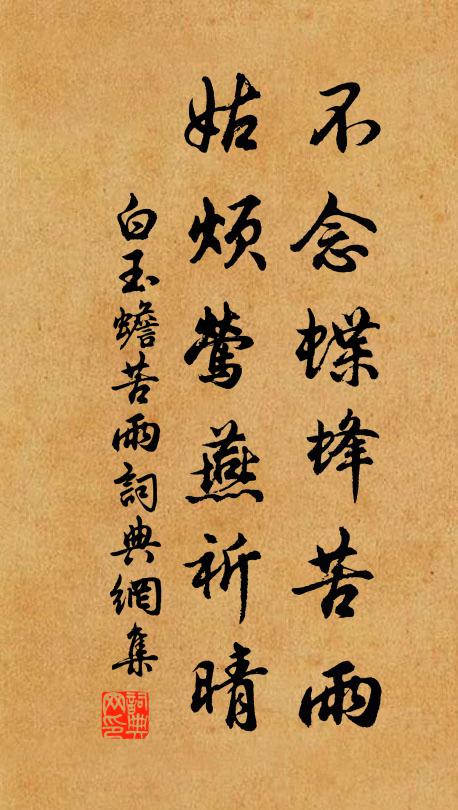 不念蝶蜂苦雨
姑煩鶯燕祈晴
白玉蟾苦雨詞典網集
詞典網印